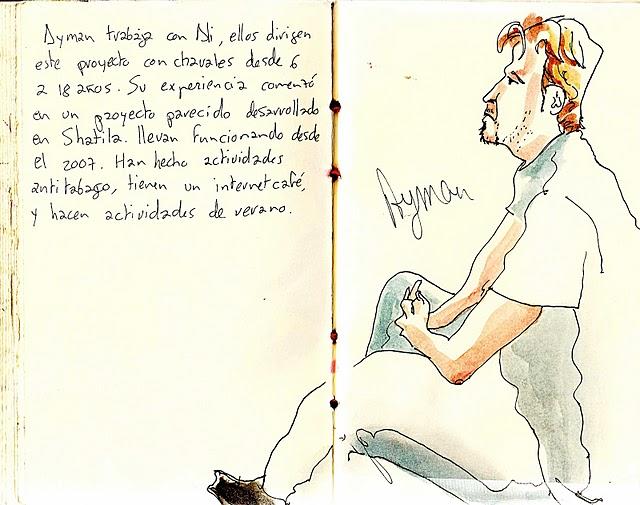 Ayman trabaja con Ali, ellos dirigen
este proyecto con chavales desde 6
a 18 años. Su experiencia comenzó
en un proyecto parecido desarrollado
en Shatila. llevan funcionando desde
el 2007. Han hecho actividades
antitabaco, tienen un internet café,
y hacen actividades de verano.
Ayman